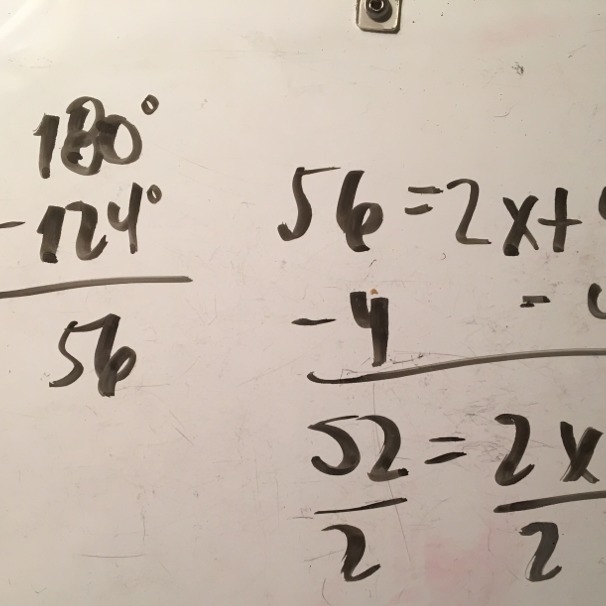 180°
-124°
56
56 = 2x+
-4 -
52 = 2x
2 2